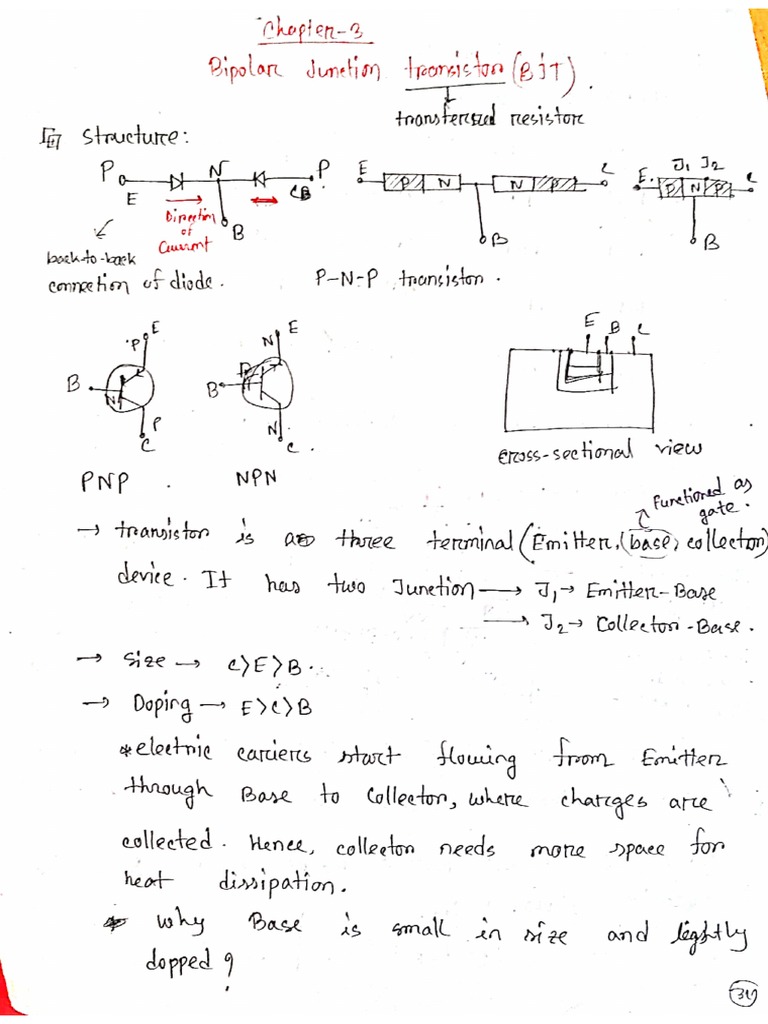 Chapter-3
Bipolar Junction transistor (BJT).
transferred resistor
Structure:
P N P
E CB
Direction of Current
B
back-to-back
connection of diode.
E P N N P C
B
E. J1 J2 C
P N P
B
P-N-P transistor.
P E
B N
P
C
PNP.
N E
B P
N
C.
NPN
E B C
cross-sectional view
Functioned as
gate.
→ transistor is a three terminal (Emitter, (base) collector)
device. It has two Junction → J1 → Emitter-Base
→ J2 → Collector-Base.
→ Size → C>E>B.
→ Doping → E>C>B
*electric cariers start flowing from Emitter
through Base to Collector, where charges are
collected. Hence, collector needs more space for
heat dissipation.
* why Base is small in size and lightly
dopped?